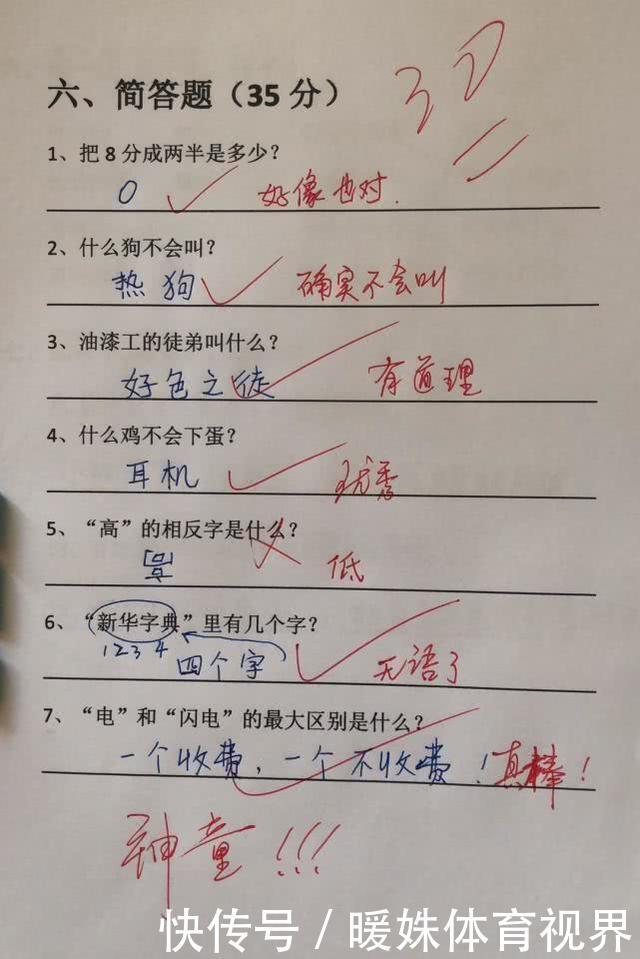 六、简答题（35 分）
30
1、把 8 分成两半是多少？
0 好像也对.
2、什么狗不会叫？
热狗 确实不会叫
3、油漆工的徒弟叫什么？
好色之徒 有道理
4、什么鸡不会下蛋？
耳机 优秀
5、“高”的相反字是什么？
低
6、“新华字典”里有几个字？
1 2 3 4 四个字 无语了
7、“电”和“闪电”的最大区别是什么？
一个收费，一个不收费！真棒！
神童!!!
快传号 / 暖姝体育视界